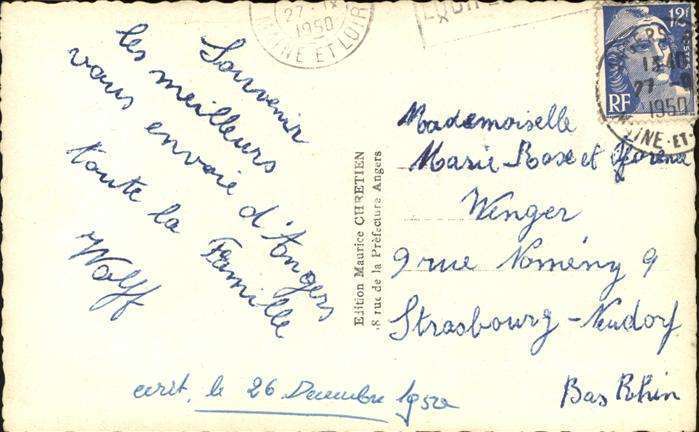 27 · IX
1950
MAINE ET LOIRE
12F
RF
ANGERS
1950
MAINE-ET-
Souvenir
les meilleurs
vous envoie d'Angers
toute la Famille
Wolff
Edition Maurice CHRETIEN
8 rue de la Préfecture Angers
Mademoiselle
Marie-Rose et
Wenger
9 rue Nomény 9
Strasbourg-Neudorf
Bas Rhin
ecrit, le 26 Decembre 1950